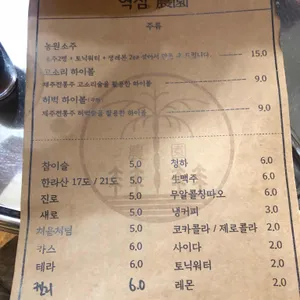 주류
농원소주 15.0
고소리 하이볼 9.0
제주전통주 고소리술을 활용한 하이볼
허벅 하이볼 9.0
제주전통주 허벅술을 활용한 하이볼
참이슬 5.0
한라산 17도 / 21도 5.0
진로 5.0
새로 5.0
처음처럼 5.0
카스 5.0
테라 5.0
켈리 6.0
청하 6.0
生맥주 6.0
무알콜칭따오 6.0
냉커피 3.0
코카콜라 / 제로콜라 2.0
사이다 2.0
토닉워터 2.0
레몬 2.0